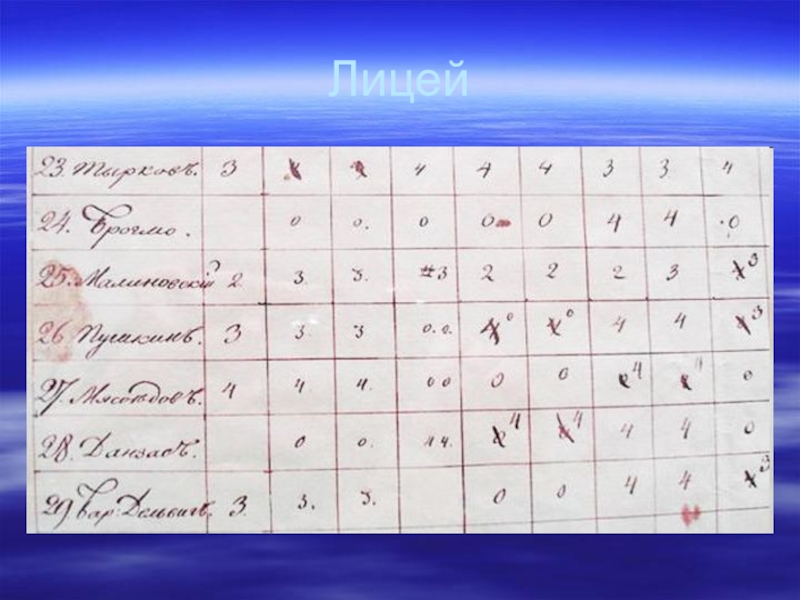 Лицей
23. Тырковъ. 3 4 4 4 3 3 4
24.Броглио. 0 0. 0 0 0 4 4 .0
25. Малиновскій 2. 3. 3. 3 2 2 2 3 3
26 Пушкинъ. 3 3. 3 0. 0. 0 0 4 4 3
27. Мясоѣдовъ. 4 4 4. 0 0 0 0 4 4 0
28. Данзасъ. 0 0. 4 4. 4 4 4 4 0
29 Бар. Дельвигъ. 3. 3. 3. 0 0 4 4 3